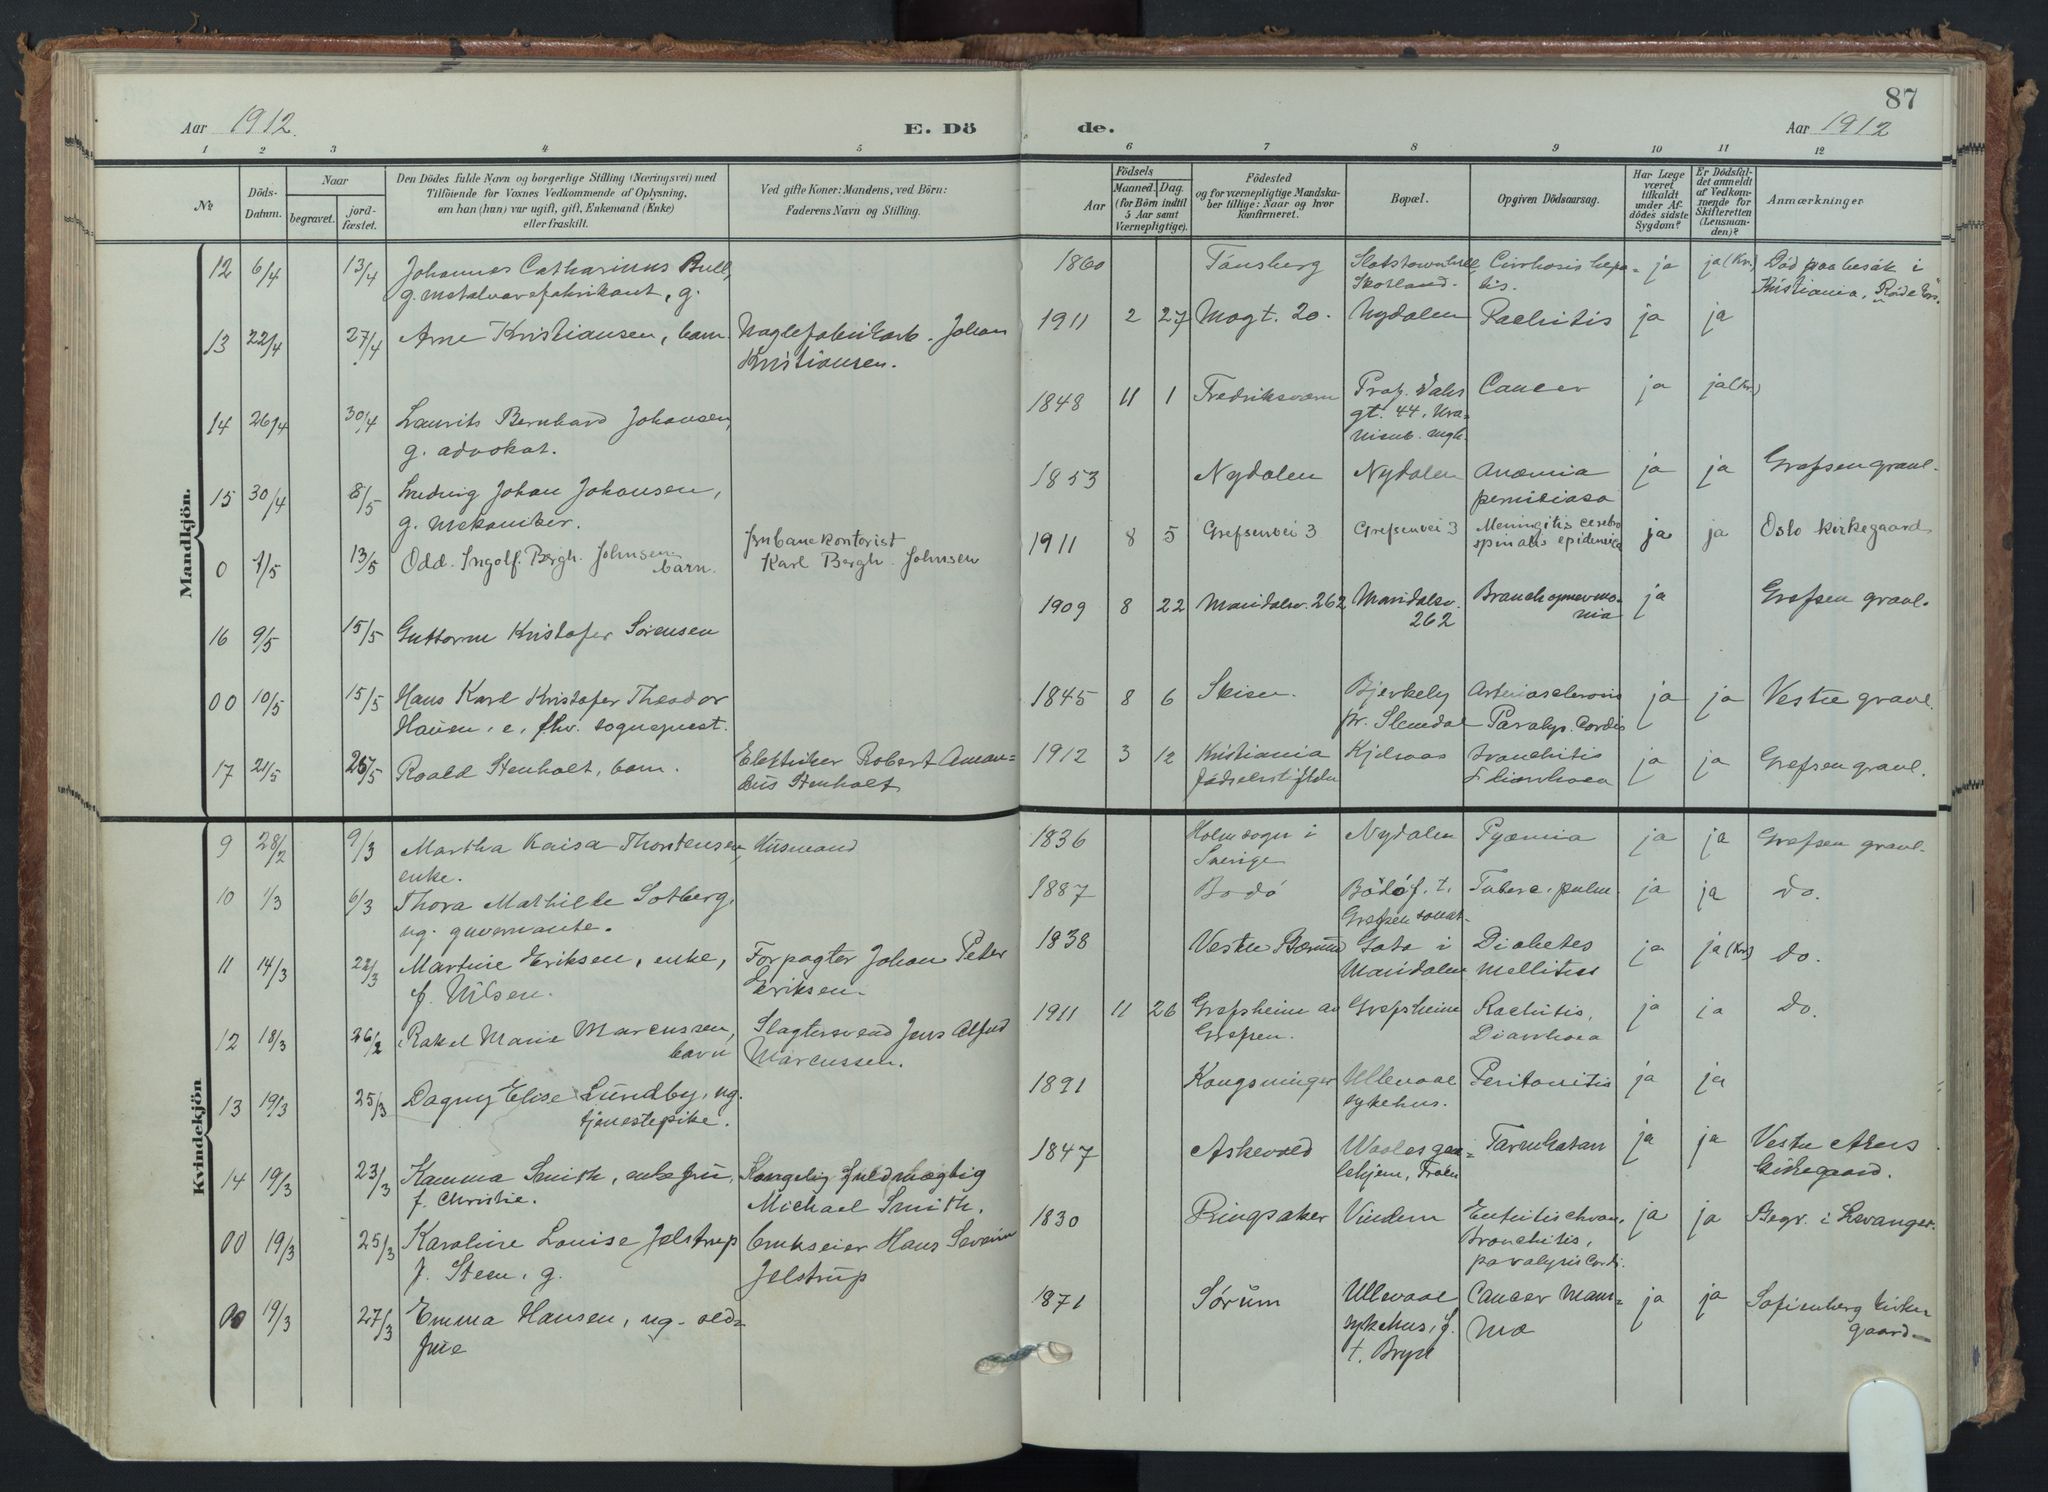 87
Aar 1912. E. Dö de. Aar 1912
1 2 3 4 5 6 7 8 9 10 11 12
№
Döds-
Datum.
Naar
begravet.
jord-
fæstet.
Den Dödes fulde Navn og borgerlige Stilling (Næringsvei) med
Tilföiende for Voxnes Vedkommende af Oplysning,
om han (hun) var ugift, gift, Enkemand (Enke)
eller fraskilt.
Ved gifte Koner: Mandens, ved Börn:
Faderens Navn og Stilling.
Födsels
Aar
Maaned. Dag.
(for Börn indtil
5 Aar samt
Værnepligtige).
Födested
og for værnepligtige Mandska-
ber tillige: Naar og hvor
Konfirmeret.
Bopæl.
Opgiven Dödsaarsag.
Har Læge
været
tilkaldt
under Af-
dödes sidste
Sygdom?
Er Dödsfal-
det anmeldt
af Vedkom-
mende for
Skifteretten
(Lensman-
den)?
Anmærkninger
Mandkjön.
12 6/4 13/4 Johannes Catharinus Bull, 1860 Tønsberg Cirrhosis hepa- ja ja (Kr.) Død paa besøk i
g. metalvarefabrikant, g. Skotland. tis. Kristiania, Røde Kors.
13 22/4 27/4 Arne Kristiansen, barn. Johan 1911 2 27 Magt. 20. Nydalen Rachitis ja ja
Kristiansen.
14 26/4 30/4 Laurits Bernhard Johansen, 1848 11 1 Fredriksværn Prof. Dahls Cancer ja ja (Kr.)
g. advokat. gt. 44.
15 30/4 8/5 Ludvig Johan Johansen, 1853 Nydalen Nydalen Anæmia ja ja Grefsen gravl.
g. mekaniker. perniciosa
0 1/5 13/5 Odd. Ingolf. Bergh. Johnsen Jrnbanekontorist 1911 8 5 Grefsenvei 3 Grefsenvei 3 Meningitis cerebro ja ja Oslo kirkegaard
barn. Karl Bergh. Johnsen spinalis epidemica
16 9/5 15/5 Guttorm Kristofer Sørensen 1909 8 22 Maridalsv. 262 Maridalsv. Bronchopnevmo- ja Grefsen gravl.
262 nia
00 10/5 15/5 Hans Karl Kristofer Theodor 1845 8 6 Skien. Bjerkely Arteriosclerosis ja ja Vestre gravl.
e, fhv. sogneprest. pr. Slemdal Paralys. Cordis
17 21/5 25/5 Roald Stenholt, barn. Elektriker Robert Aman- 1912 3 12 Kristiania Kjelsaas bronchitis ja ja Grefsen gravl.
dus Stenholt Fødselsstiftelse diarrhoea
Kvindekjön
9 28/2 9/3 Martha Kaisa Thorstensen, Husmand 1836 Holm sogn i Nydalen Pyæmia ja ja Grefsen gravl.
enke. Sverige
10 1/3 6/3 Thora Mathilde Solberg, 1887 Bodø Bodø f. t. Tuberc. pulm. ja ja do.
ug. guvernante. Grefsen sanat.
11 14/3 22/3 Martine Eriksen, enke, Forpagter Johan Peter 1838 Vestre Bærum i Diabetes ja ja (Kr.) do.
f. Nilsen. Eriksen. Maridalen mellitus
12 18/3 26/2 Rakel Marie Marcussen, Slagtersvend Jens Alfred 1911 11 26 Grefsheim av Grefsheim Rachitis, ja ja do.
barn Marcussen. Grefsen. Diarrhoea
13 19/3 25/3 Dagny Elise Lundby, ug. 1891 Kongsvinger Ullevaal Peritonitis ja ja
tjenestepike. sykehus.
14 19/3 23/3 Kamma Smith, enkefru, Kongelig fuldmægtig 1847 Askevold Tarmkatar ja ja Vestre Akers
f. Christie. Michael Smith. kirkegaard.
00 19/3 25/3 Karoline Louise Jelstrup Brukseier Hans Severin 1830 Ringsaker Vindern ja ja Begr. i Levanger.
f. Steen, g. Jelstrup Bronchitis,
paralysis Cordi.
00 19/3 27/3 Emma Hansen, ug. old- 1871 Sørum Ullevaal Cancer mam- ja ja Sofienberg kirke
frue sykehus, mæ gaard
t. Bryn